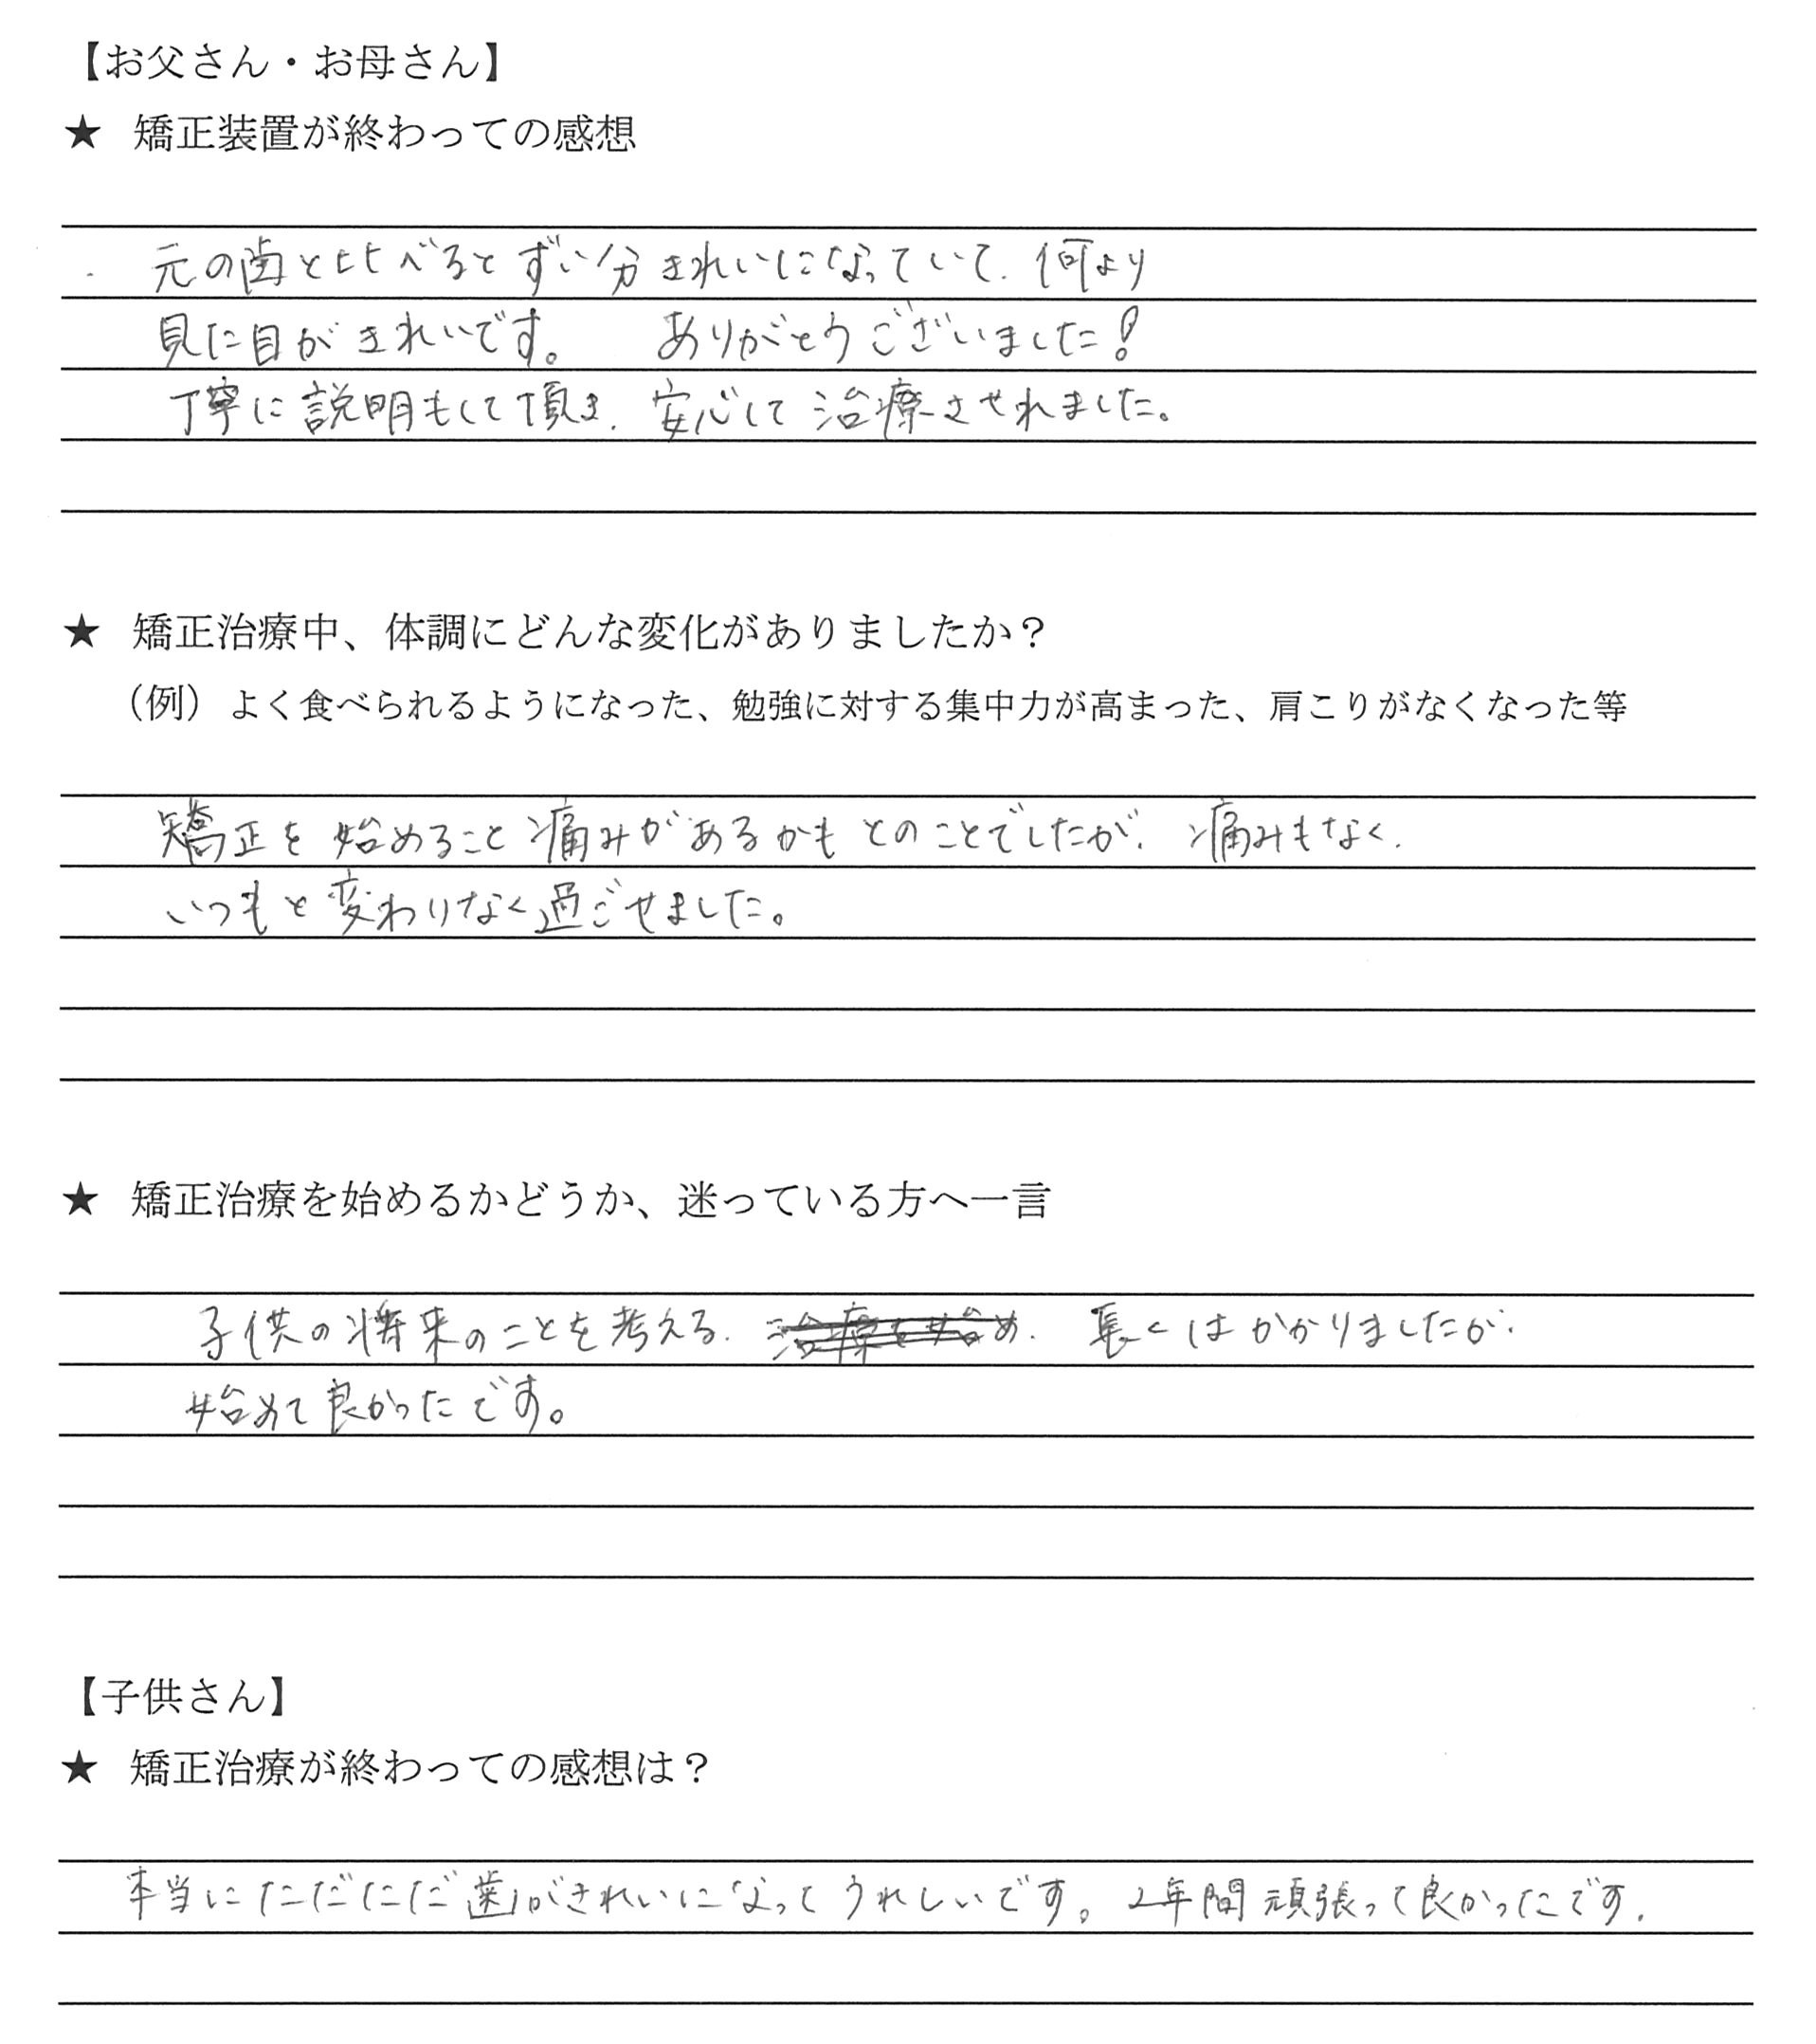 【お父さん・お母さん】
★ 矯正装置が終わっての感想
元の歯と比べるとずい分きれいになっていて、何より
見た目がきれいです。 ありがとうございました!
丁寧に説明もして頂き、安心して治療させれました。
★ 矯正治療中、体調にどんな変化がありましたか？
（例）よく食べられるようになった、勉強に対する集中力が高まった、肩こりがなくなった等
矯正を始めること痛みがあるかもとのことでしたが、痛みもなく、
いつもと変わりなく過ごせました。
★ 矯正治療を始めるかどうか、迷っている方へ一言
子供の将来のことを考える、治療を始め、長くはかかりましたが、
始めて良かったです。
【子供さん】
★ 矯正治療が終わっての感想は？
本当にただただ歯がきれいになってうれしいです。2年間頑張って良かったです。